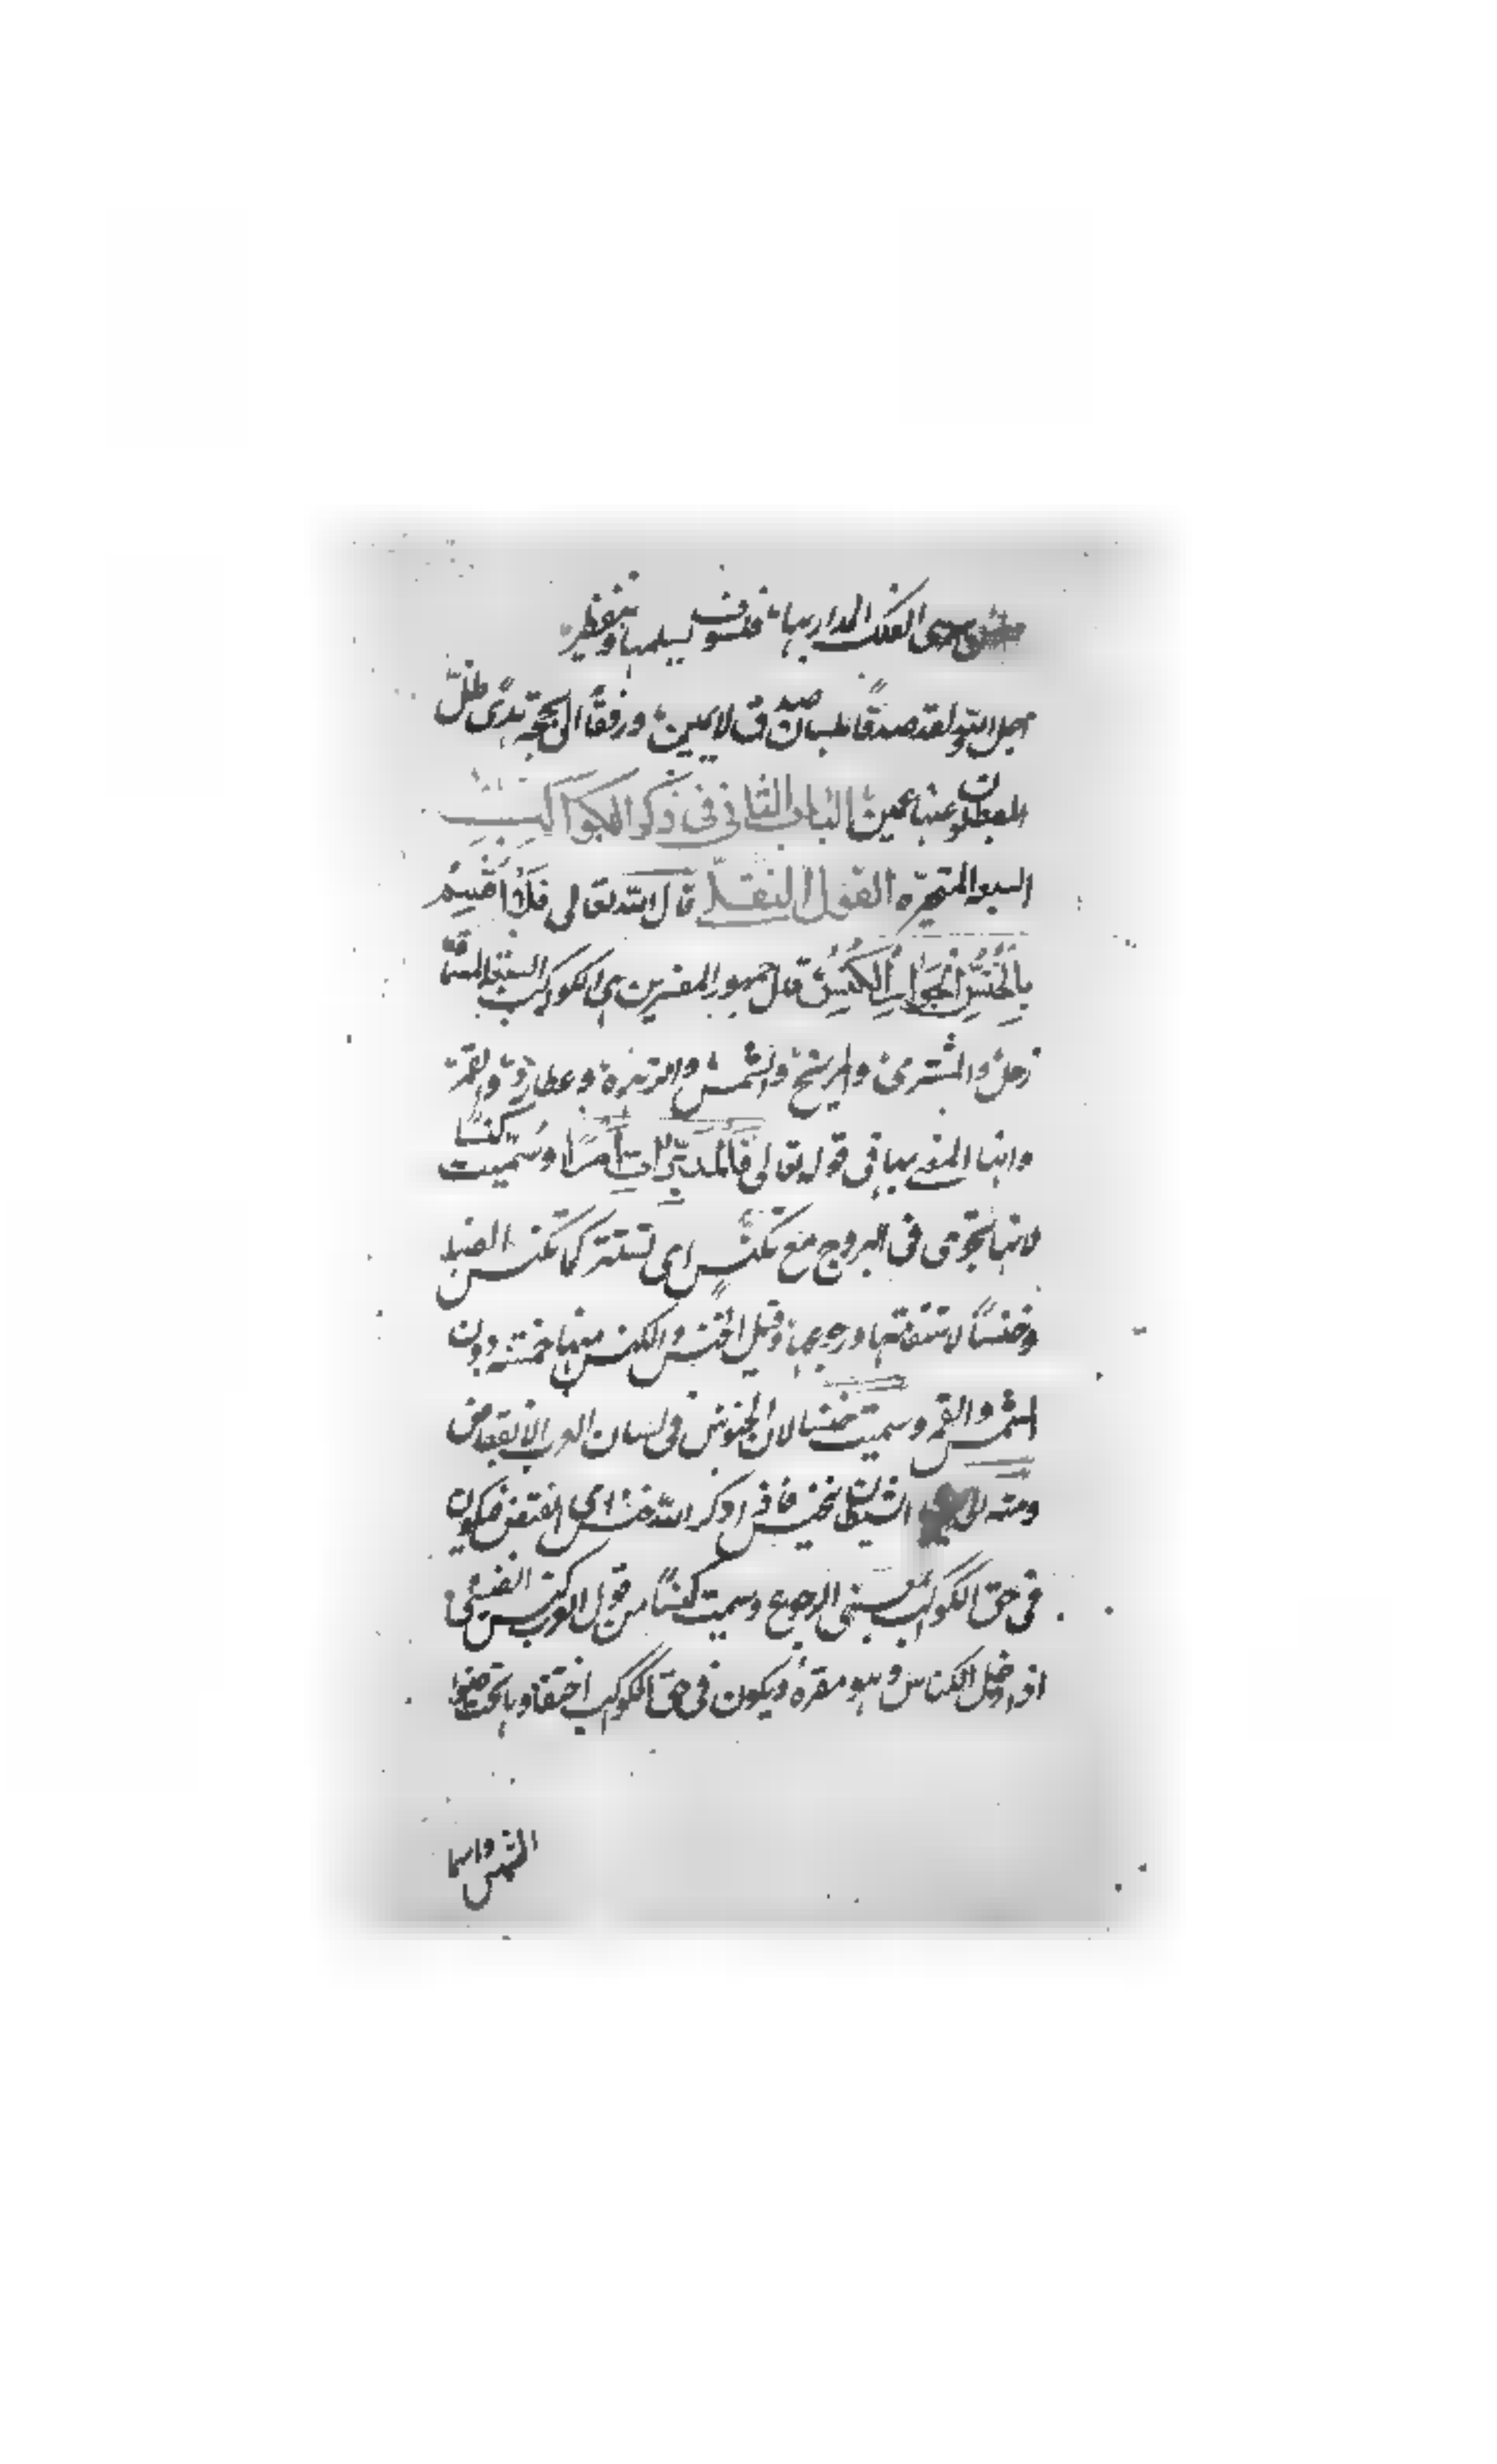 الفلك المدار بها فلسوف يسلمها وتنفطر
اجل والله لقد صدقا ورفقا الى
عنها عمين الباب الثانى فى ذكر الكواكب
السبعه المتحيره القول النقلى قال الله تعالى فلا اقسم
بِالْخُنَّسِ الْجَوَارِ الْكُنَّسِ قال جمهور المفسرين هى الكواكب السبعه
زحل والمشترى والمريخ والشمس والزهرة وعطارد والقمر
وانها المعنى بها فى قوله تعالى فَالْمُدَبِّرَاتِ أَمْرًا وسُميت كنسا
لانها تجرى فى البروج مع تكنس اى تستتر كما تكنس الضبا
وخنسًا لاستقامتها ورجوعها وقيل الخنس والكنس منها خمسه دون
الشمس والقمر وسميت خنسا لان الخنوس فى لسان العرب الانقباض
ومنه الشيطان يخنس فاذا ذكر الله خنس اى انقبض فيكون
فى حق الكواكب بمعنى الرجوع وسميت كنسًا من قول العرب كنس الضبى
اذا دخل الكناس وهو مقره ويكون فى حق الكواكب اختفاوها تحت ضوء
الشمس واما